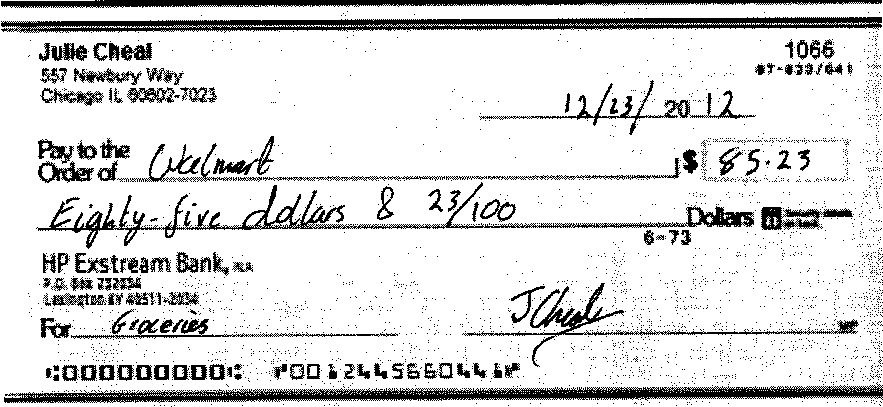 Julie Cheal 1066
557 Newbury Way 67-833/641
Chicago IL 60602-7023
12/23/ 20 12
Pay to the
Order of Walmart $ 85.23
Eighty-five dollars & 23/100 Dollars
6-73
HP Exstream Bank, N.A.
P.O. Box 232034
Lexington KY 40511-2034
For Groceries J Cheal MP
⑆000000000⑆